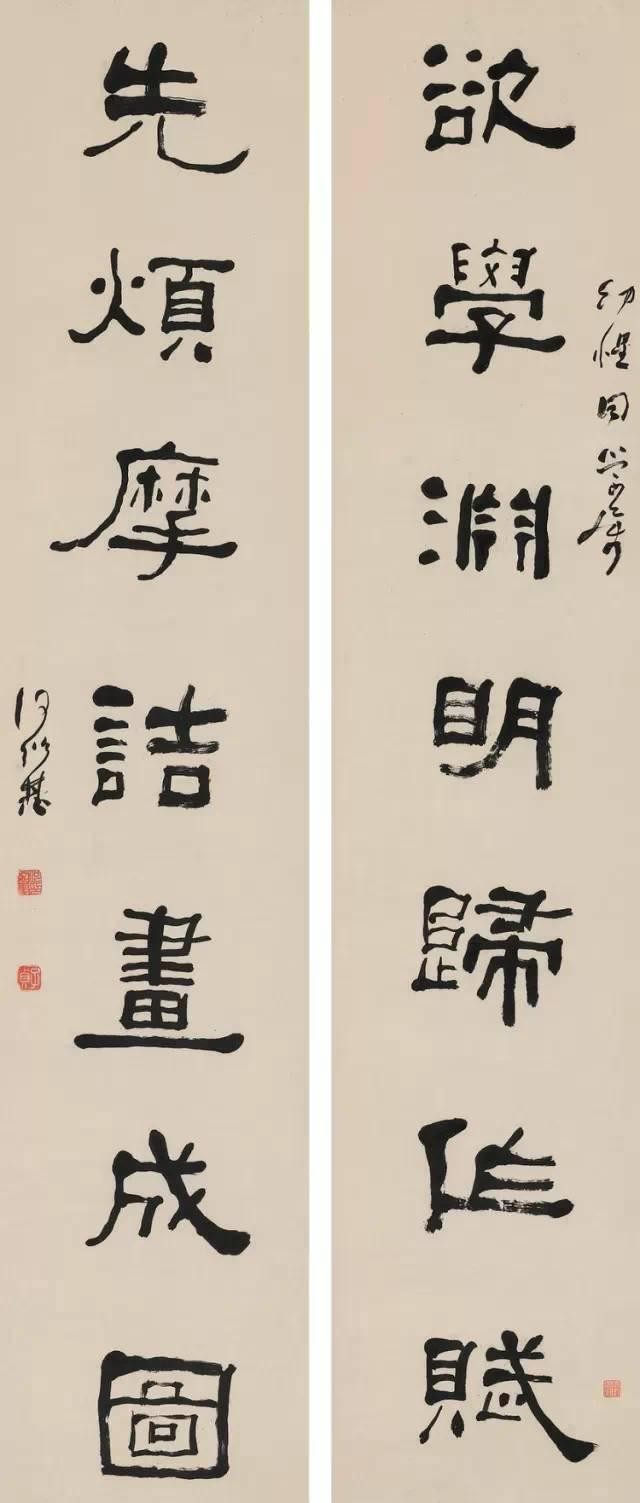 欲學淵明歸作賦
幼惺同學屬
先煩摩詰畫成圖
何紹基
子貞